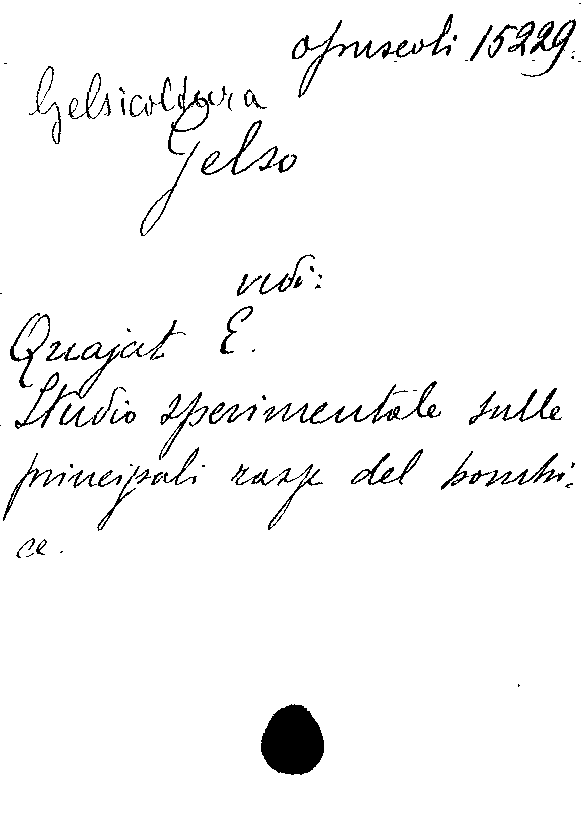 opuscoli 15229.
Gelsicoltura
Gelso
vedi:
Quajat E.
Studio sperimentale sulle
principali razze del bombi-
ce.